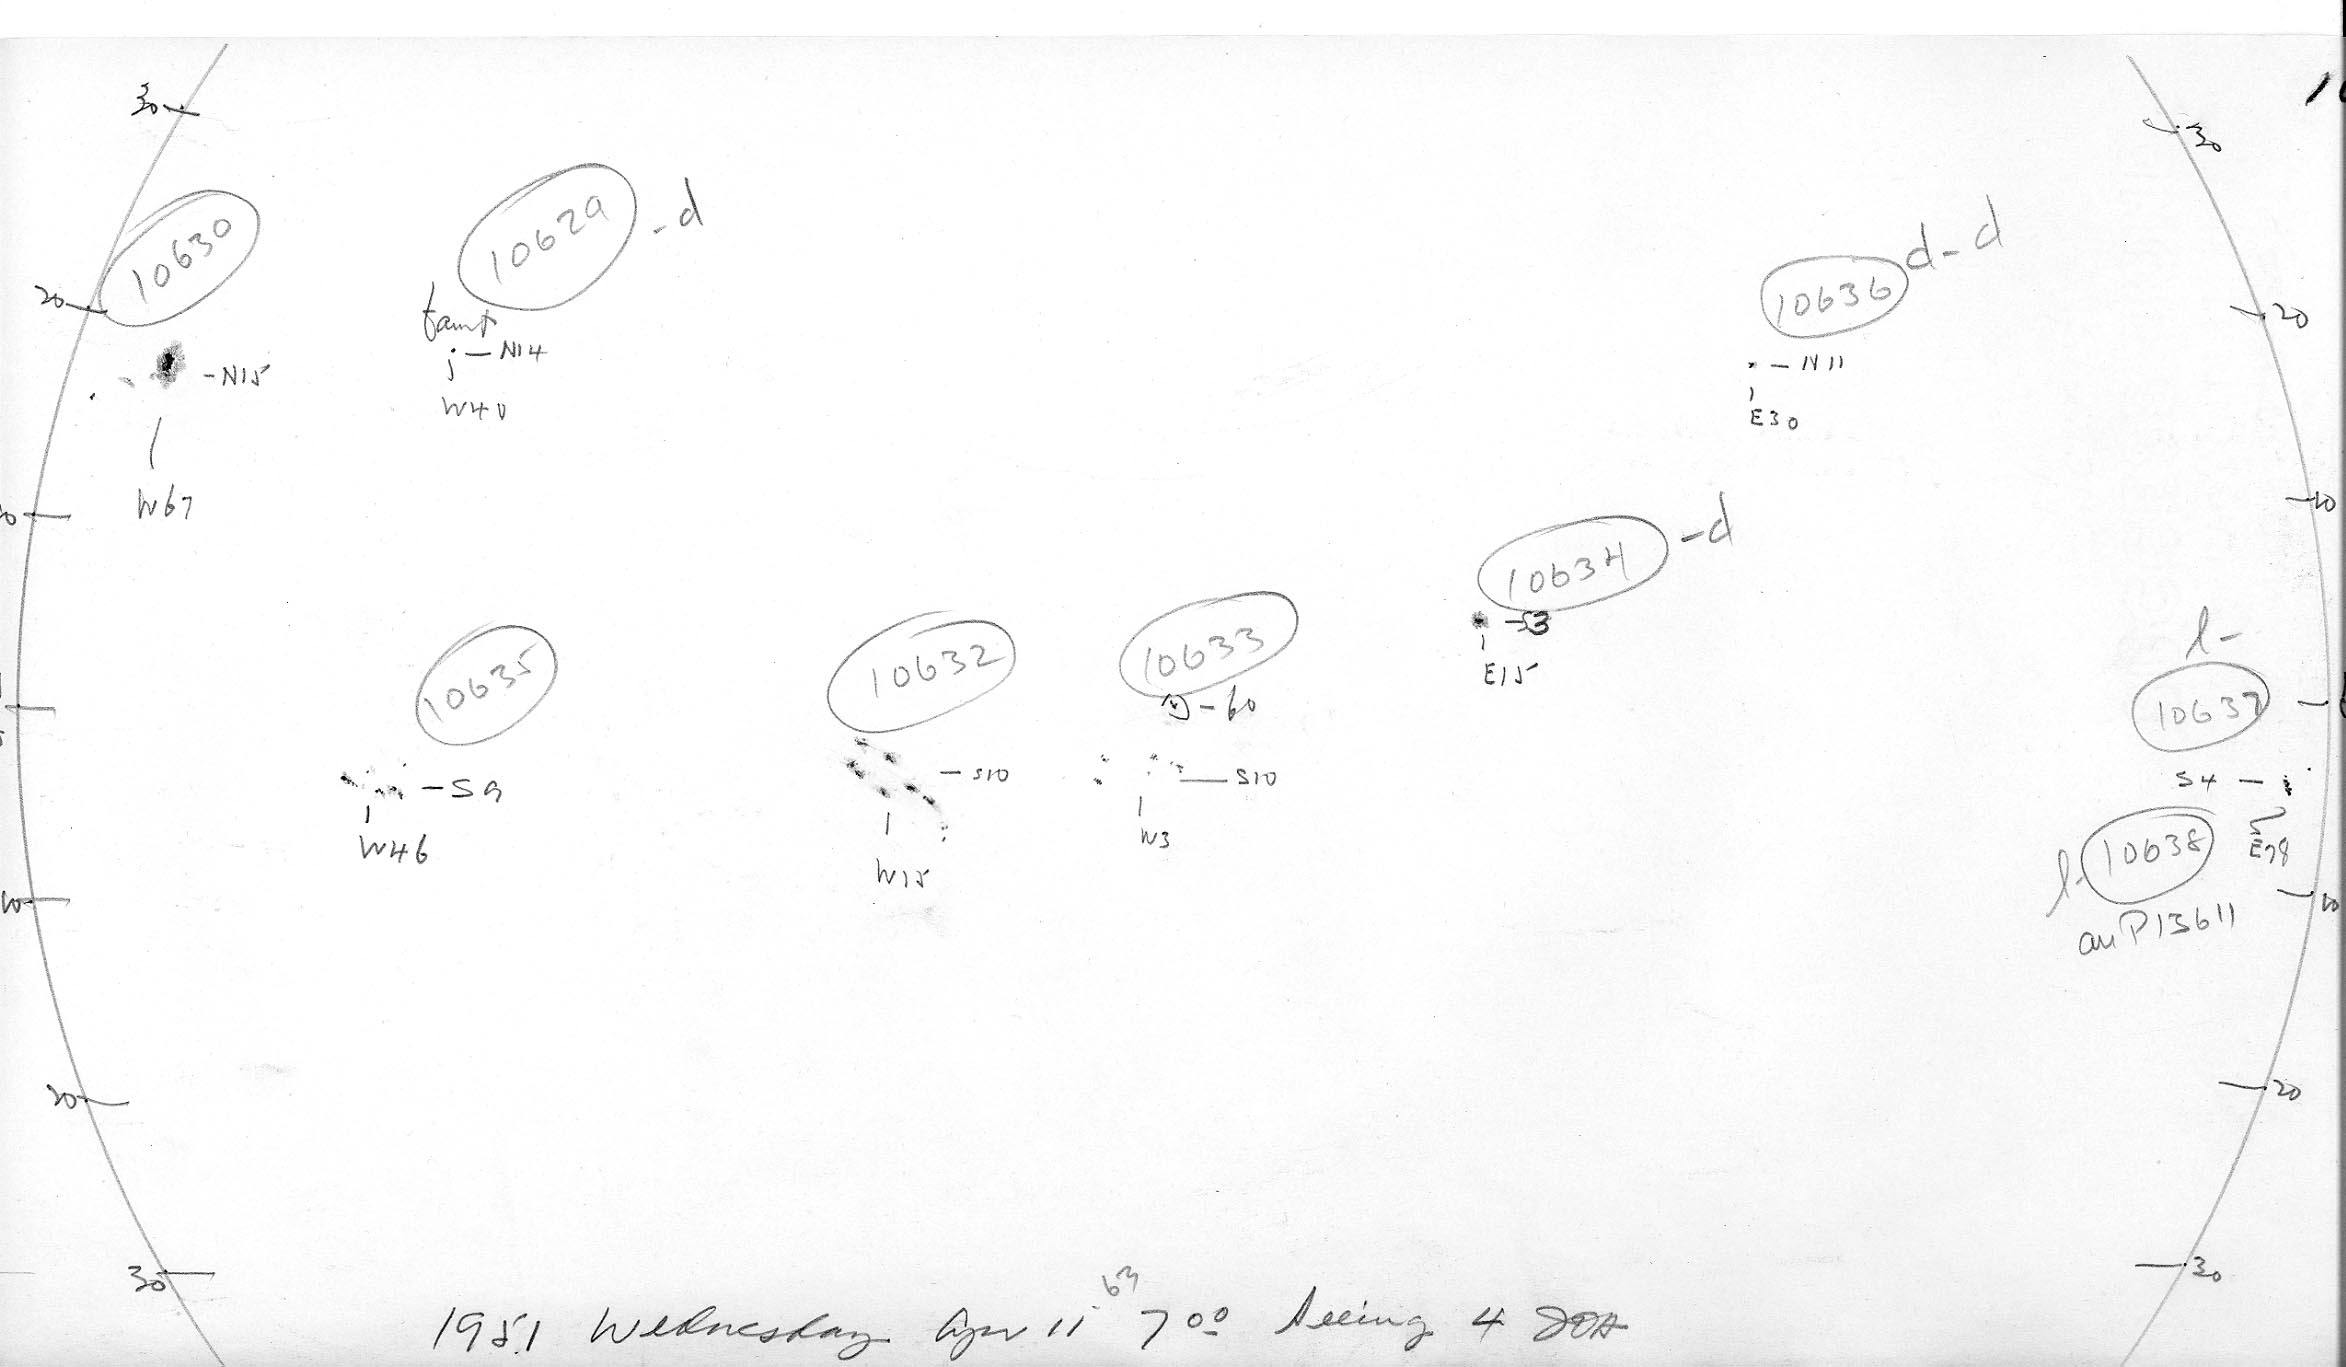 30
30
10630
10629 -d
10636 d-d
20
faint
20
-N15
j -N14
- N11
W40
E30
W67
10
10634 -d
-S3
E15
10635
10632
10633
l-
10637
-60
-S9
-S10
S10
S4 -
W46
W15
W3
10638
l-
E78
10
10
20
20
30
30
1951 Wednesday Apr 11 7 00 Seeing 4